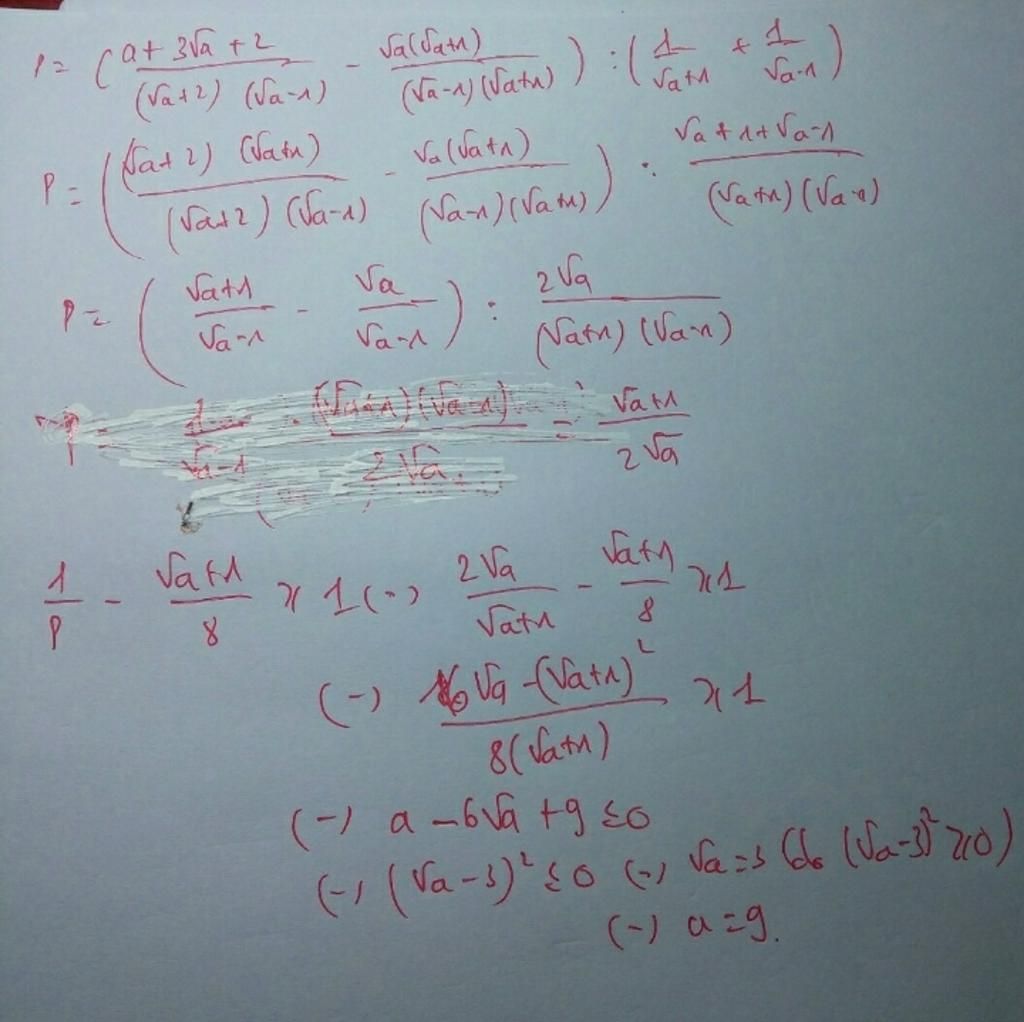 P = ( a + 3√a + 2 / (√a + 2) (√a - 1) - √a(√a+1) / (√a-1)(√a+1) ) : ( 1 / √a+1 + 1 / √a-1 )
P = ( (√a + 2) (√a+1) / (√a+2) (√a-1) - √a(√a+1) / (√a-1)(√a+1) ) : √a + 1 + √a - 1 / (√a+1)(√a-1)
P = ( √a+1 / √a-1 - √a / √a-1 ) : 2√a / (√a+1) (√a-1)
P = 1 / √a-1 . (√a+1)(√a-1) / 2√a = √a+1 / 2√a
1 / P - √a+1 / 8 ≥ 1 (-) 2√a / √a+1 - √a+1 / 8 ≥ 1
(-) 16√a - (√a+1)² / 8(√a+1) ≥ 1
(-) a - 6√a + 9 ≤ 0
(-) (√a - 3)² ≤ 0 (-) √a = 3 (do (√a-3)² ≥ 0)
(-) a = 9.